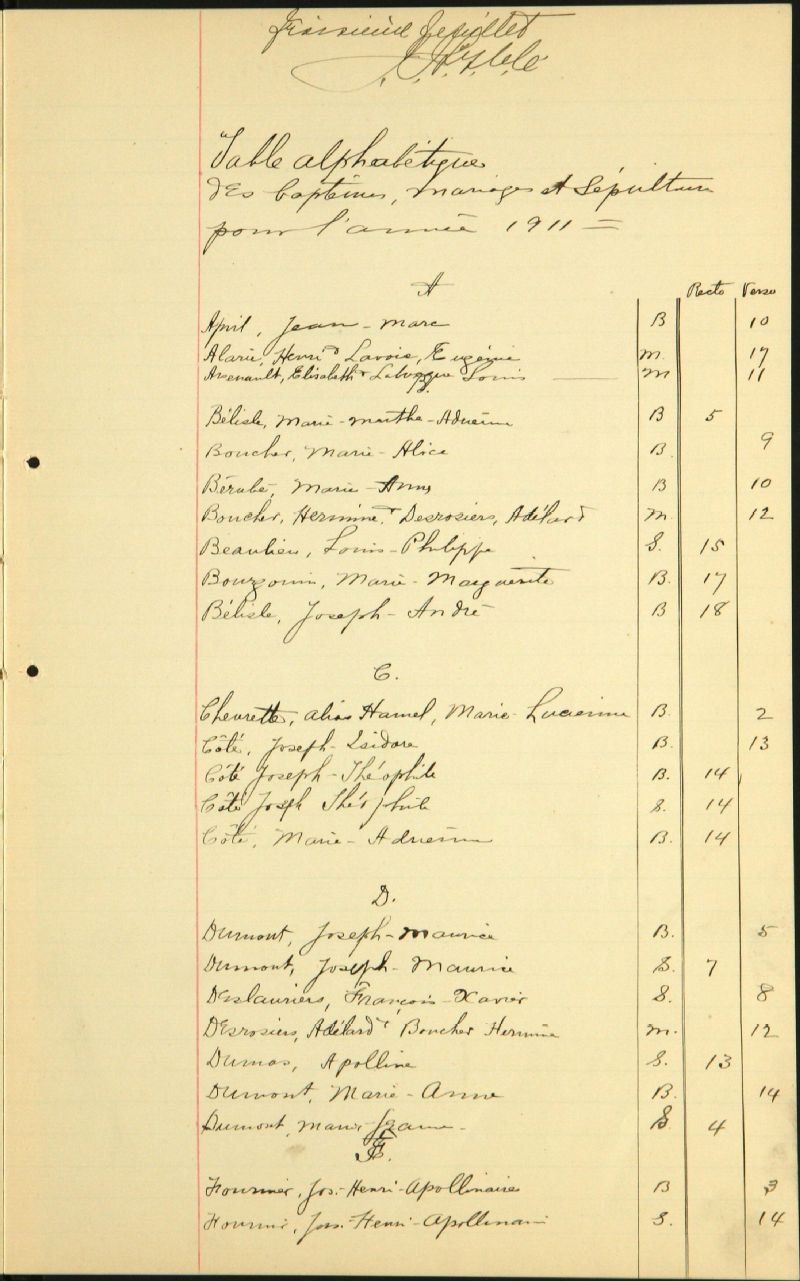 feuillet
Table alphabétique
des baptêmes, mariages et Sépulture
pour l'année 1911 =
A Recto Verso
April, Jean-Marc B 10
Alarie, Henri & Lavoie, Eugénie M. 17
Arsenault, Elisabeth & Louis — M 11
Bélisle, Marie-Marthe-Adrienne B 5
Boucher, Marie-Alice B. 9
Bérubé, Marie-Anne B 10
Boucher, Hermine, & Desrosiers, Adélard M. 12
Beaulieu, Louis-Philippe S. 15
Bourgouin, Marie-Marguerite B. 17
Bélisle, Joseph-André B 18
C.
Chevrette, alias Hamel, Marie-Lucienne B. 2
Côté, Joseph-Isidore B. 13
Côté Joseph-Théophile B. 14
Côté Joseph Théophile S. 14
Côté, Marie-Adrienne B. 14
D.
Dumont, Joseph-Maurice B. 5
Dumont, Joseph-Maurice S. 7
Deslauriers, François-Xavier S. 8
Desrosiers, Adélard & Boucher Hermine M. 12
Dumas, Apolline S. 13
Dumont, Marie-Anne B. 14
Dumont, Marie-Jeanne- S 4
F.
Fournier, Jos.-Henri-Apollinaire B 3
Fournier, Jos.-Henri-Apollinaire S. 14